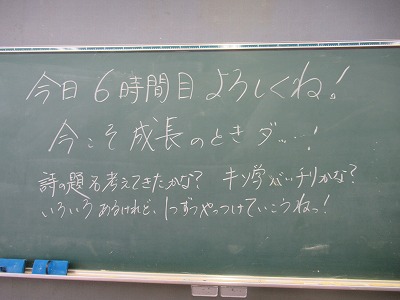 今日6時間目よろしくね!
今こそ成長のときダッ…!
詩の題名考えてきたかな? キソ学バッチリかな?
いろいろあるけれど、1つずつやっつけていこうねっ!